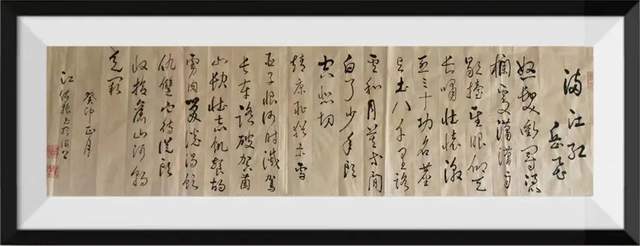 满江红
岳飞
怒发冲冠凭
栏处潇潇雨
歇抬望眼仰天
长啸壮怀激
烈三十功名尘
与土八千里路
云和月莫等闲
白了少年头
空悲切
靖康耻犹未雪
臣子恨何时灭驾
长车踏破贺兰
山缺壮志饥餐胡
虏肉笑谈渴饮
血待从头
收拾旧山河朝
天阙
癸卯正月
江